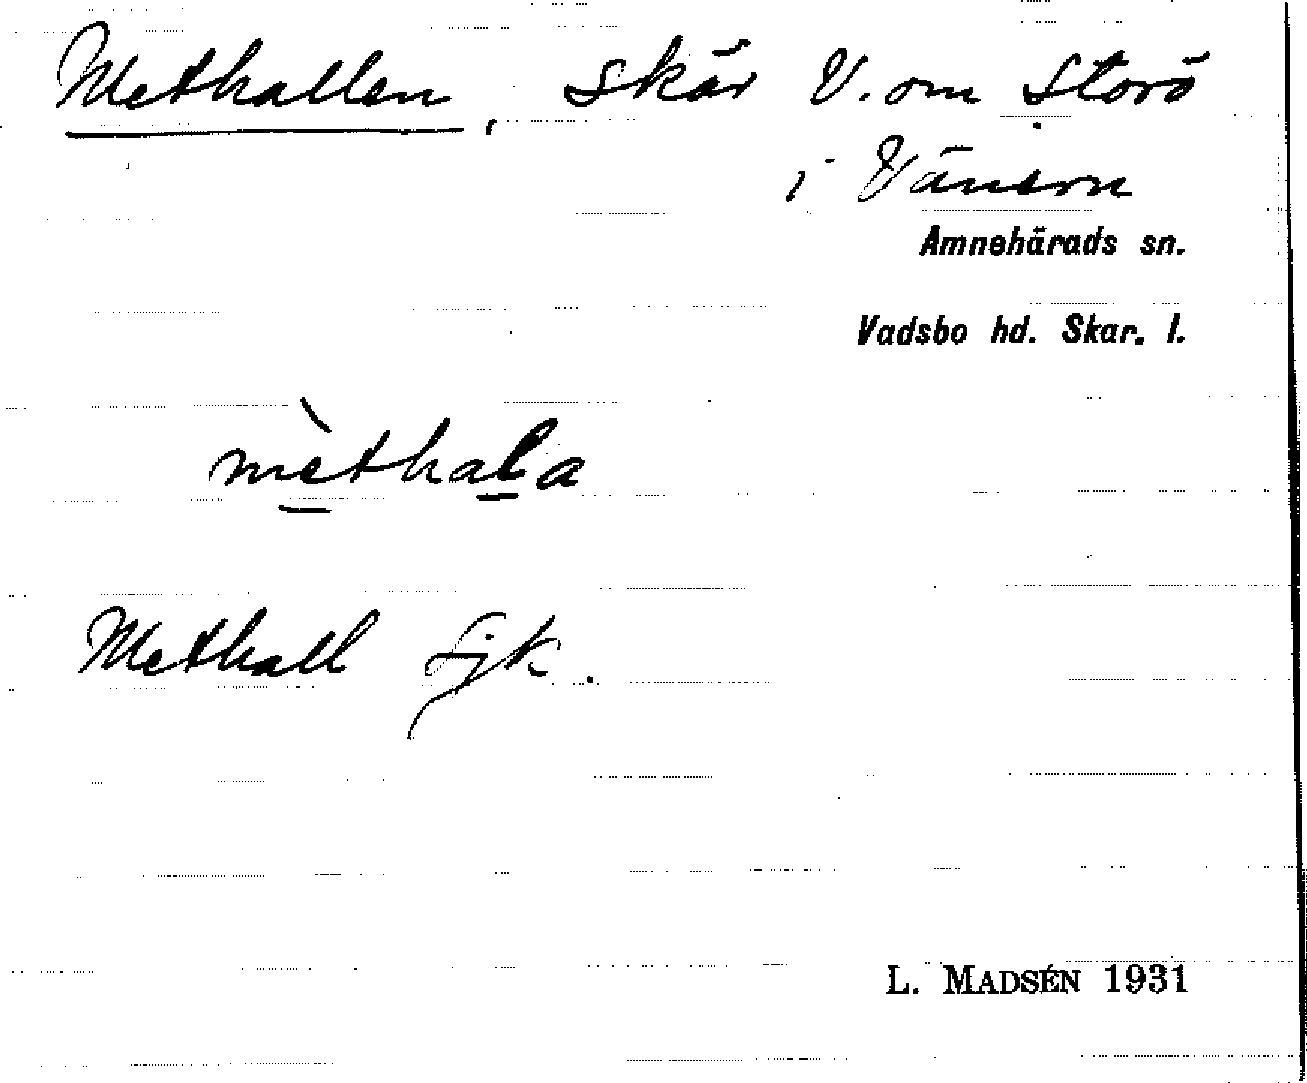 Methallen, skär V. om Storö
i Vänern
Amnehärads sn.
Vadsbo hd. Skar. l.
mèthala
Methall Sjk.
L. MADSÉN 1931